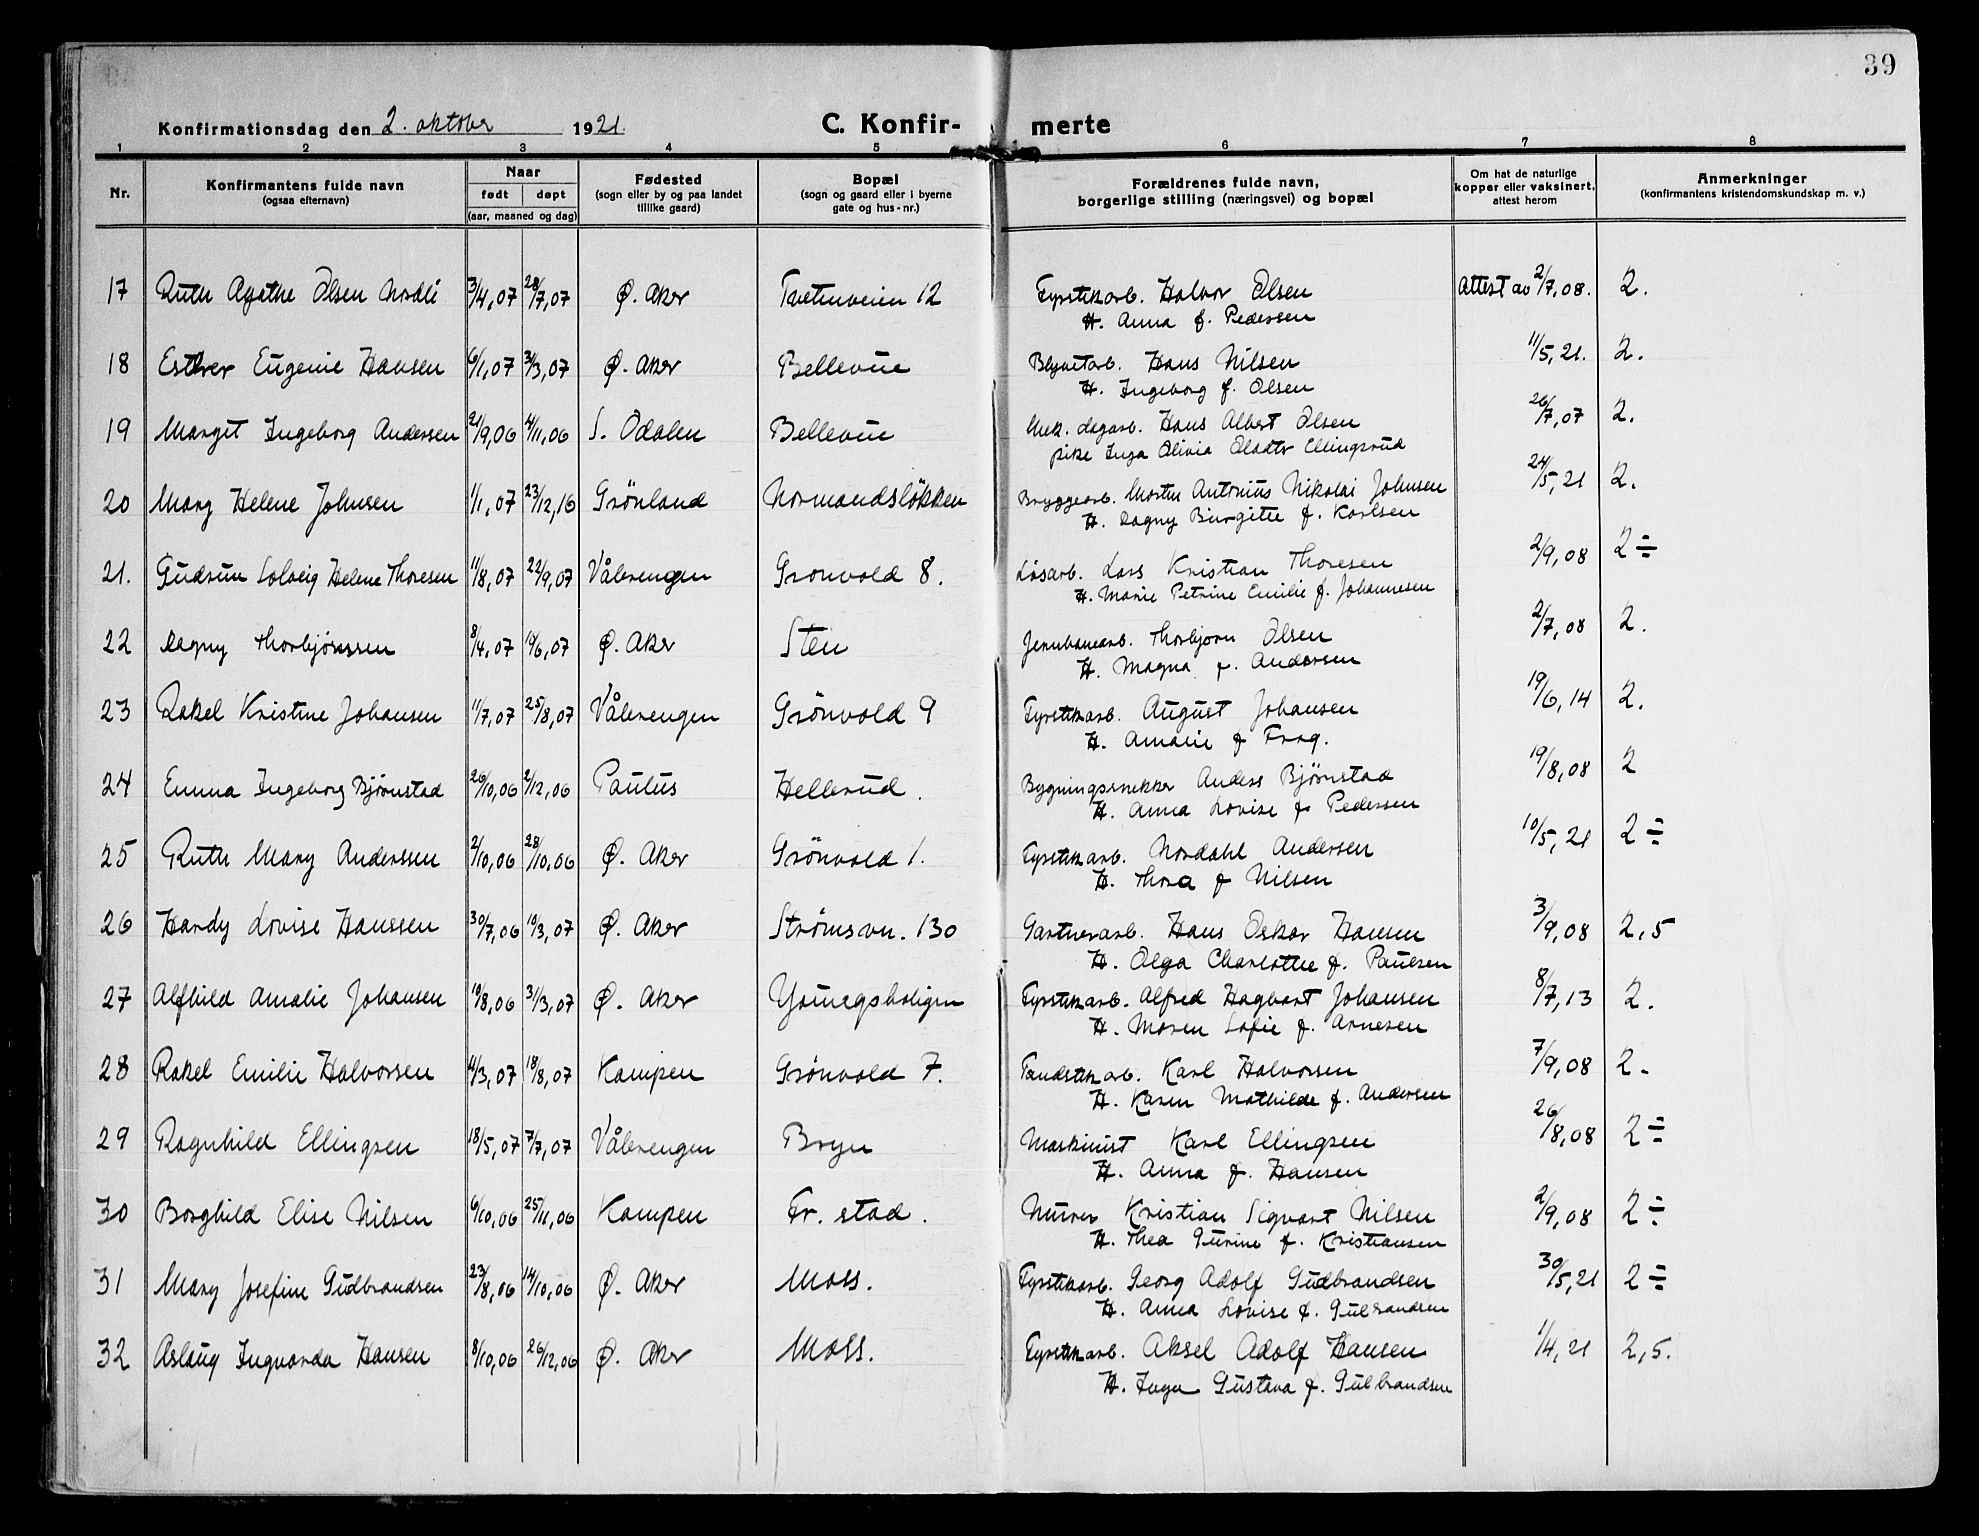 39
Konfirmationsdag den 2. oktober 1921.
C. Konfirmerte
1 2 3 4 5 6 7 8
Nr.
Konfirmantens fulde navn
(ogsaa efternavn)
Naar
født døpt
(aar, maaned og dag)
Fødested
(sogn eller by og paa landet
tillike gaard)
Bopæl
(sogn og gaard eller i byerne
gate og hus-nr.)
Forældrenes fulde navn,
borgerlige stilling (næringsvei) og bopæl
Om hat de naturlige
kopper eller vaksinert,
attest herom
Anmerkninger
(konfirmantens kristendomskundskap m. v.)
17 Ruth Agathe Olsen Nordli 3/4,07 28/7,07 Ø. Aker Tvetenveien 12 Fyrstikarb. Halvor Olsen Attest av 2/7,08. 2.
H. Anna f. Pedersen
18 Esther Eugenie Hansen 6/1,07 31/3,07 Ø. Aker Bellevue Blyhvitarb. Hans Nilsen 11/5, 21. 2.
H. Ingeborg f. Olsen
19 Marget Ingeborg Andersen 21/9,06 4/11,06 S. Odalen Bellevue Mek. dagarb. Hans Albert Olsen 26/7,07 2.
pike Inga Olivia Olsdtr Ellingsrud
20 Mary Helene Johnsen 1/1,07 23/12,16 Grönland Normandsløkken Bryggearb. Morten Antonius Nikolai Johnsen 24/5,21 2.
H. Dagny Birgitte f. Karlsen
21. Gudrun Solveig Helene Thoresen 11/8,07 22/9,07 Vålerengen Grønvold 8. Løsarb. Lars Kristian Thoresen 2/9,08 2÷
H. Marie Petrine Emilie f. Johannesen
22 Dagny Thorbjørnsen 8/4,07 19/6,07 Ø. Aker Sten Jernbanearb. Thorbjørn Olsen 2/7,08 2.
H. Magna f. Andersen
23 Rakel Kristine Johansen 11/7,07 25/8,07 Vålerengen Grönvold 9 Fyrstikarb. August Johansen 19/6,14 2.
H. Amalie f
24 Emma Ingeborg Bjørnstad 26/10,06 2/12,06 Paulus Hellerud. Bygningssnekker Anders Bjørnstad 19/8,08 2
H. Anna Lovise f Pedersen
25 Ruth Mary Anderssen 2/10,06 28/10,06 Ø. Aker Grönvold 1. Fyrstikarb. Nordahl Andersen 10/5, 21 2÷
H. Thora f Nilsen
26 Hardy Lovise Hanssen 30/7,06 10/3,07 Ø. Aker Strömsvn. 130 Gartnerarb. Hans Oskar Hansen 3/9,08 2,5
H. Olga Charlotte f. Paulsen
27 Alfhild Amalie Johansen 19/8,06 31/3,07 Ø. Aker Youngsboligen Fyrstikarb. Alfred Hagbart Johansen 8/7,13 2.
H. Maren Sofie f. Arnesen
28 Rakel Emilie Halvorsen 11/3,07 18/8,07 Kampen Grönvold 7. Tændstikarb. Karl Halvorsen 7/9,08 2.
H. Karen Mathilde f. Andersen
29 Ragnhild Ellingsen 18/5,07 7/7,07 Vålerengen Bryn Maskinist Karl Ellingsen 26/8,08 2÷
H. Anna f. Hansen
30 Borghild Elise Nilsen 6/10,06 25/11,06 Kampen Fr. stad. Murer Kristian Sigvart Nilsen 2/9,08 2÷
H. Thea Gurine f. Kristiansen
31 Mary Josefine Gudbrandsen 23/8,06 14/10,06 Ø. Aker Moss. Fyrstikarb. Georg Adolf Gudbrandsen 30/5,21 2÷
H. Anna Lovise f. Gulbrandsen
32 Aslaug Ingvarda Hansen 8/10,06 26/12,06 Ø. Aker Moss. Fyrstikarb. Aksel Adolf Hansen 1/4, 21 2,5.
H. Inga Gustava f. Gulbrandsen